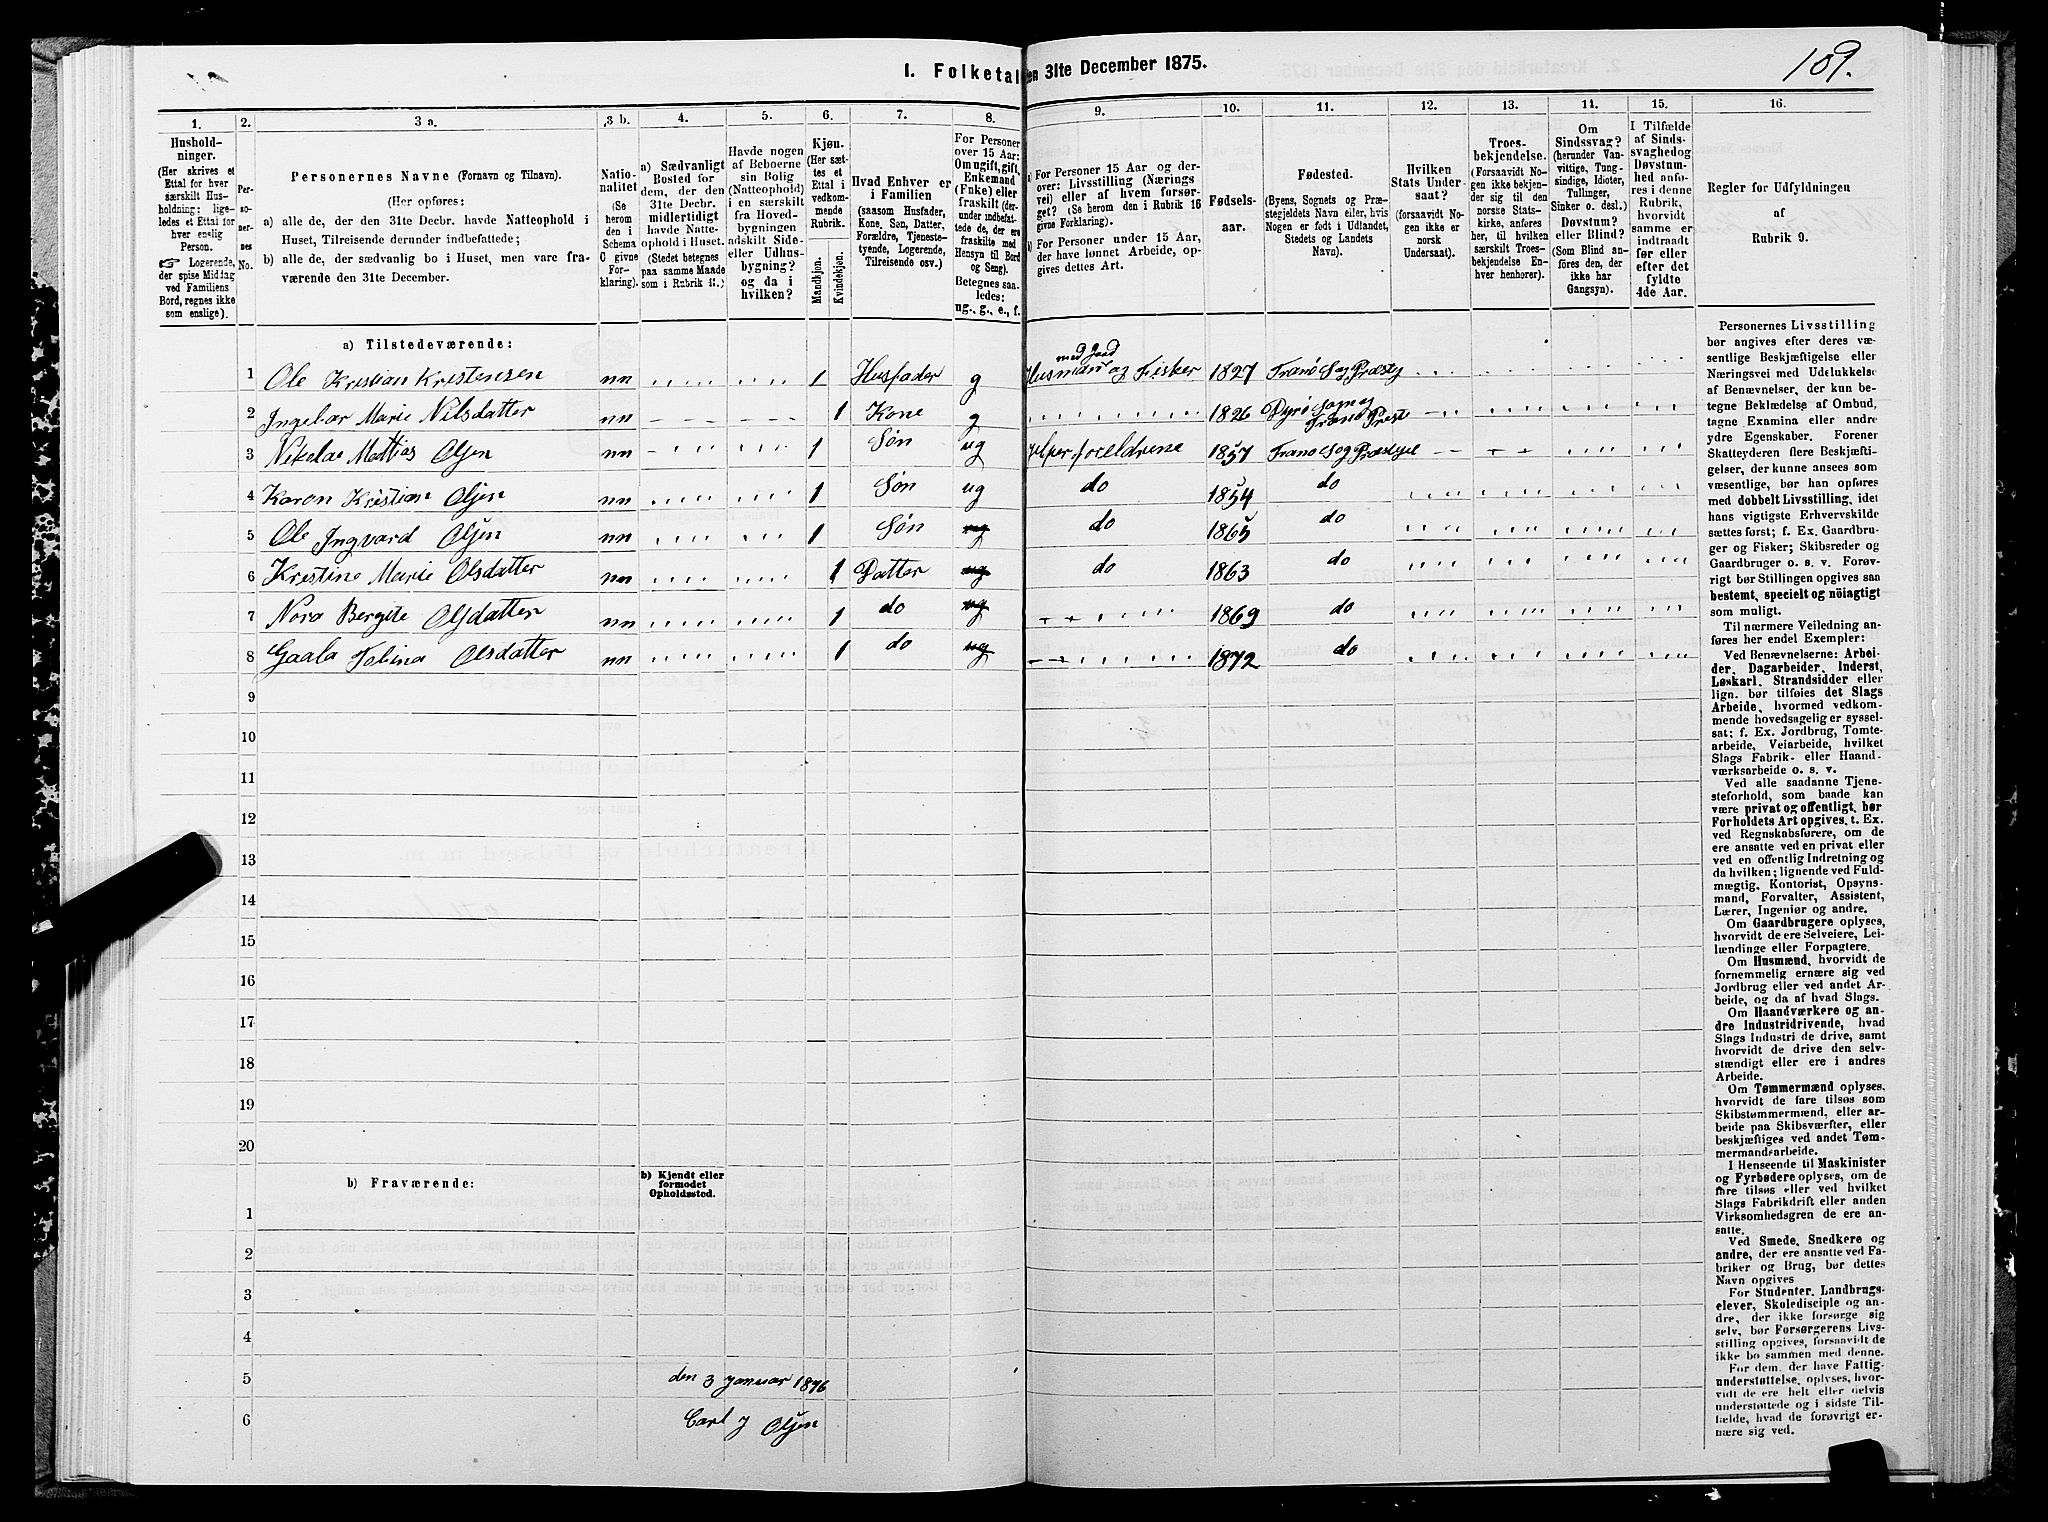 109.
I. Folketal
den 31te December 1875.
1.
2.
3 a.
3 b.
4.
5.
6.
7.
8.
9.
10.
11.
12.
13.
14.
15.
16.
Hushold-
ninger.
(Her skrives et
Ettal for hver
særskilt Hus-
holdning; lige-
ledes et Ettal for
hver enslig
Person.
☞ Logerende,
der spise Middag
ved Familiens
Bord, regnes ikke
som enslige).
Per-
so-
ner-
nes
No.
Personernes Navne (Fornavn og Tilnavn).
(Her opføres:
a) alle de, der den 31te Decbr. havde Natteophold i
Huset, Tilreisende derunder indbefattede;
b) alle de, der sædvanlig bo i Huset, men vare fra-
værende den 31te December.
Natio-
nalitet
(Se
herom
den i
Schema
C givne
For-
klaring).
a) Sædvanligt
Bosted for
dem, der den
31te Decbr.
midlertidigt
havde Natte-
ophold i Huset.
(Stedet betegnes
paa samme Maade
som i Rubrik 11.)
Havde nogen
af Beboerne
sin Bolig
(Natteophold)
i en særskilt
fra Hoved-
bygningen
adskilt Side-
eller Udhus-
bygning?
og da i
hvilken?
Kjøn.
(Her sæt-
tes et
Ettal i
vedkom-
mende
Rubrik.
Mandkjøn.
Kvindekjøn.
Hvad Enhver er
i Familien
(saasom Husfader,
Kone, Søn, Datter,
Forældre, Tjeneste-
tyende, Logerende,
Tilreisende osv.)
For Personer
over 15 Aar:
Om ugift, gift,
Enkemand
(Enke) eller
fraskilt (der-
under indbefat-
tede de, der ere
fraskilte med
Hensyn til Bord
og Seng).
Betegnes saa-
ledes:
ug., g., e., f.
a) For Personer 15 Aar og der-
over: Livsstilling (Nærings-
vei) eller af hvem forsør-
get? (Se herom den i Rubrik 16
givne Forklaring).
b) For Personer under 15 Aar,
der have lønnet Arbeide, op-
gives dettes Art.
Fødsels-
aar.
Fødested.
(Byens, Sognets og Præ-
stegjeldets Navn eller, hvis
Nogen er født i Udlandet,
Stedets og Landets
Navn).
Hvilken
Stats Under-
saat?
(forsaavidt No-
gen ikke er
norsk
Undersaat).
Troes-
bekjendelse.
(Forsaavidt No-
gen ikke bekjen-
der sig til den
norske Stats-
kirke, anføres
her, til hvilken
særskilt Troes-
bekjendelse En-
hver henhører).
Om
Sindssvag?
(herunder Van-
vittige, Tung-
sindige, Idioter,
Tullinger,
Sinker o. desl.)
Døvstum?
eller Blind?
(Som Blind an-
føres den, der
ikke har
Gangsyn).
I Tilfælde
af Sinds-
svaghed og
Døvstum-
hed anfø-
res i denne
Rubrik,
hvorvidt
samme er
indtraadt
før eller
efter det
fyldte
4de Aar.
Regler for Udfyldningen
af
Rubrik 9.
a) Tilstedeværende:
1 Ole Kristian Kristensen nn 1 Husfader g Husmand med Jord og Fisker 1827 Tranø Sog Præstg
2 Ingebor Marie Nilsdatter nn 1 Kone g 1826 Dyrø Sogn og Tranø Prest
3 Nikolae Mattias Olsen nn 1 Søn ug Jelper foreldrene 1857 Tranø Sog Præstgel
4 Karon Kristian Olsen nn 1 Søn ug do 1854 do
5 Ole Ingvard Olsen nn 1 Søn ug do 1865 do
6 Kristine Marie Olsdatter nn 1 Datter ug do 1863 do
7 Nora Bergite Olsdatter nn 1 do ug 1869 do
8 Gaala Tobina Olsdatter nn 1 do ug 1872 do
9
10
11
12
13
14
15
16
17
18
19
20
b) Fraværende:
b) Kjendt eller
formodet
Opholdssted.
1
2
3
4
5 den 3 Januar 1876
6 Carl J Olsen
Personernes Livsstilling
bør angives efter deres væ-
sentlige Beskjæftigelse eller
Næringsvei med Udelukkelse
af Benævnelser, der kun be-
tegne Beklædelse af Ombud,
tagne Examina eller andre
ydre Egenskaber. Forener
Skatteyderen flere Beskjæfti-
gelser, der kunne ansees som
væsentlige, bør han opføres
med dobbelt Livsstilling, idet
hans vigtigste Erhvervskilde
sættes først; f. Ex. Gaardbru-
ger og Fisker; Skibsreder og
Gaardbruger o. s. v. Forøv-
rigt bør Stillingen opgives saa
bestemt, specielt og nöiagtigt
som muligt.
Til nærmere Veiledning an-
føres her endel Exempler:
Ved Benævnelserne: Arbei-
der, Dagarbeider, Inderst,
Løskarl, Strandsidder eller
lign. bør tilføies det Slags
Arbeide, hvormed vedkom-
mende hovedsagelig er syssel-
sat; f. Ex. Jordbrug, Tomte-
arbeide, Veiarbeide, hvilket
Slags Fabrik- eller Haand-
værksarbeide o. s. v.
Ved alle saadanne Tjene-
steforhold, som baade kan
være privat og offentligt, bør
Forholdets Art opgives, t. Ex.
ved Regnskabsførere, om de
ere ansatte ved en privat eller
ved en offentlig Indretning og
da hvilken; lignende ved Fuld-
mægtig, Kontorist, Opsyns-
mand, Forvalter, Assistent,
Lærer, Ingeniør og andre.
Om Gaardbrugere oplyses,
hvorvidt de ere Selveiere, Lei-
lændinge eller Forpagtere.
Om Husmænd, hvorvidt de
fornemmelig ernære sig ved
Jordbrug eller ved andet Ar-
beide, og da af hvad Slags.
Om Haandværkere og an-
dre Industridrivende, hvad
Slags Industri de drive, samt
hvorvidt de drive den selv-
stændigt eller ere i andres
Arbeide.
Om Tømmermænd oplyses,
hvorvidt de fare tilsøs som
Skibstømmermænd, eller ar-
beide paa Skibsværfter, eller
beskjæftiges ved andet Tøm-
mermandsarbeide.
I Henseende til Maskinister
og Fyrbødere oplyses, om de
fare tilsøs eller ved hvilket
Slags Fabrikdrift eller anden
Virksomhedsgren de ere an-
satte.
Ved Smede, Snedkere og
andre, der ere ansatte ved Fa-
briker og Brug, bør dettes
Navn opgives
For Studenter, Landbrugs-
elever, Skoledisciple og an-
dre, der ikke forsørge sig
selv, bør Forsørgerens Livs-
stilling opgives, forsaavidt de
ikke bo sammen med denne.
For dem, der have Fattig-
understøttelse, oplyses, hvor-
vidt de ere helt eller delvis
understøttede og i sidste Til-
fælde, hvad de forøvrigt er-
nære sig ved.